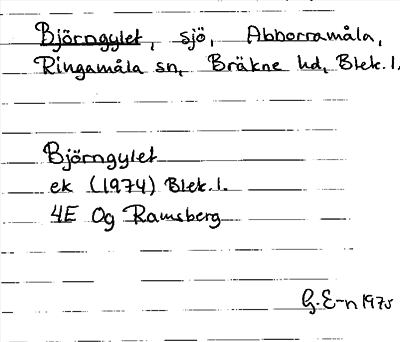 Björngylet, sjö, Abborramåla,
Ringamåla sn, Bräkne hd, Blek. l.
Björngylet
ek (1974) Blek. l.
4E 0g Ramsberg
G. E-n 1975